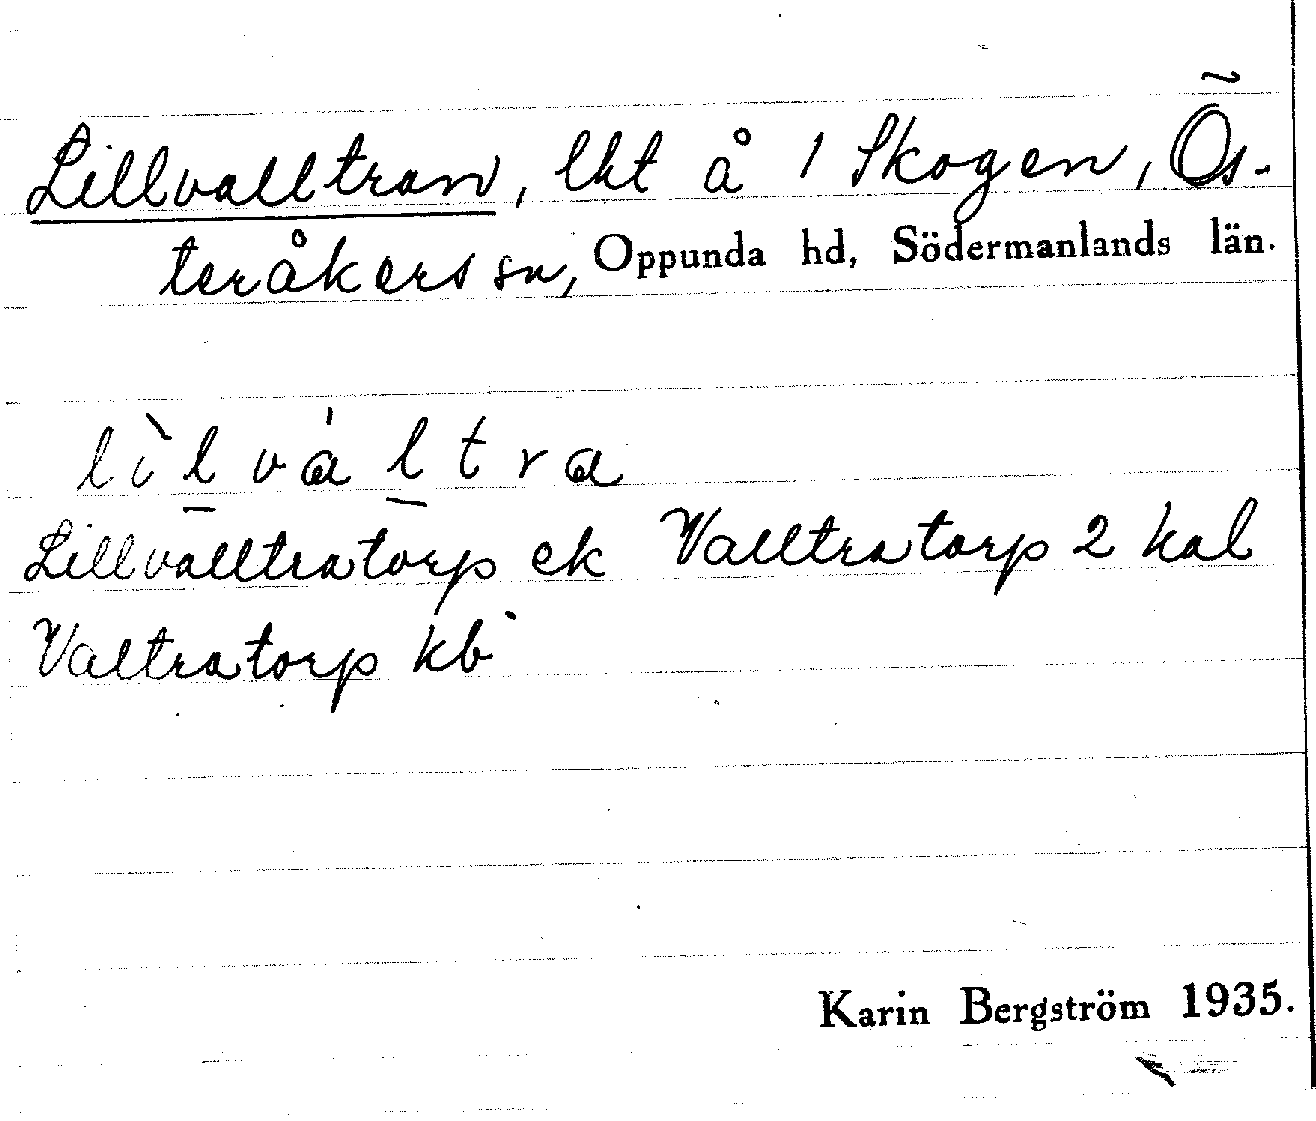 Lillvalltran, lht å 1 Skogen, Ös-
teråkers sn, Oppunda hd, Södermanlands län.
lìlváltra
Lillvalltratorp ek Valltratorp 2 hal
Valtratorp kb
Karin Bergström 1935.